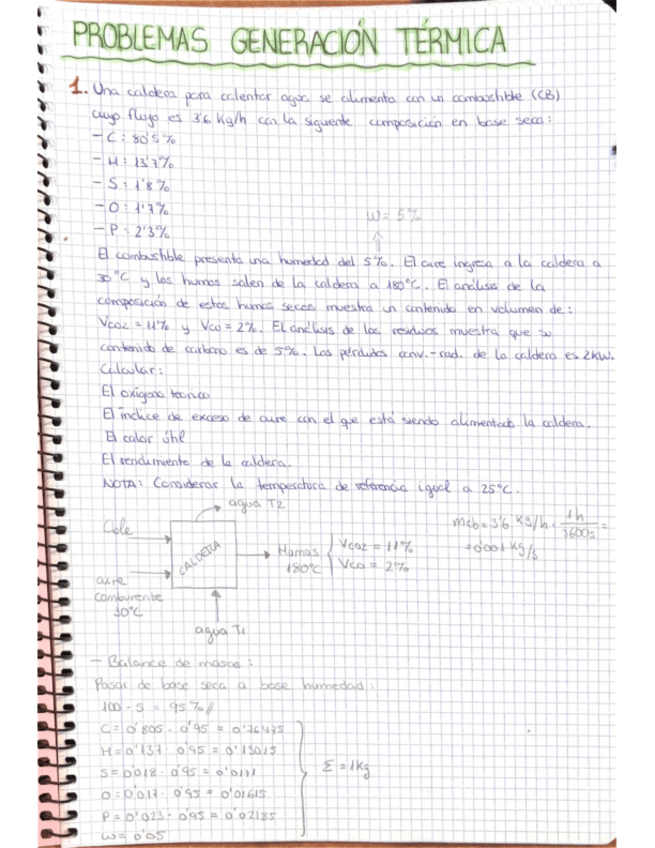 PROBLEMAS GENERACIÓN TÉRMICA
1. Una caldera para calentar agua se alimenta con un combustible (CB)
cuyo flujo es 3'6 Kg/h con la siguiente composición en base seca:
- C: 80'5%
- H: 13'7%
- S: 1'8%
- O: 1'7%
- P: 2'3%
W = 5%
El combustible presenta una humedad del 5%. El aire ingresa a la caldera a
30°C y los humos salen de la caldera a 180°C. El análisis de la
composición de estos humos secos muestra un contenido en volumen de:
Vco2 = 11% y Vco = 2%. El análisis de los residuos muestra que su
contenido de carbono es de 5%. Las pérdidas conv.-rad. de la caldera es 2kW.
Calcular:
El oxígeno teórico
El índice de exceso de aire con el que está siendo alimentada la caldera.
El calor útil
El rendimiento de la caldera.
NOTA: Considerar la temperatura de referencia igual a 25°C.
agua T2
Cble
CALDERA
Humos
180°C
Vco2 = 11%
Vco = 2%
mcb = 3'6 Kg/h · 1h/3600s =
= 0'001 Kg/s
aire
comburente
30°C
agua T1
- Balance de masas:
Pasar de base seca a base humedad:
100 - 5 = 95%//
C = 0'805 · 0'95 = 0'76475
H = 0'137 · 0'95 = 0'13015
S = 0'018 · 0'95 = 0'0171
O = 0'017 · 0'95 = 0'01615
P = 0'023 · 0'95 = 0'02185
W = 0'05
Σ = 1Kg